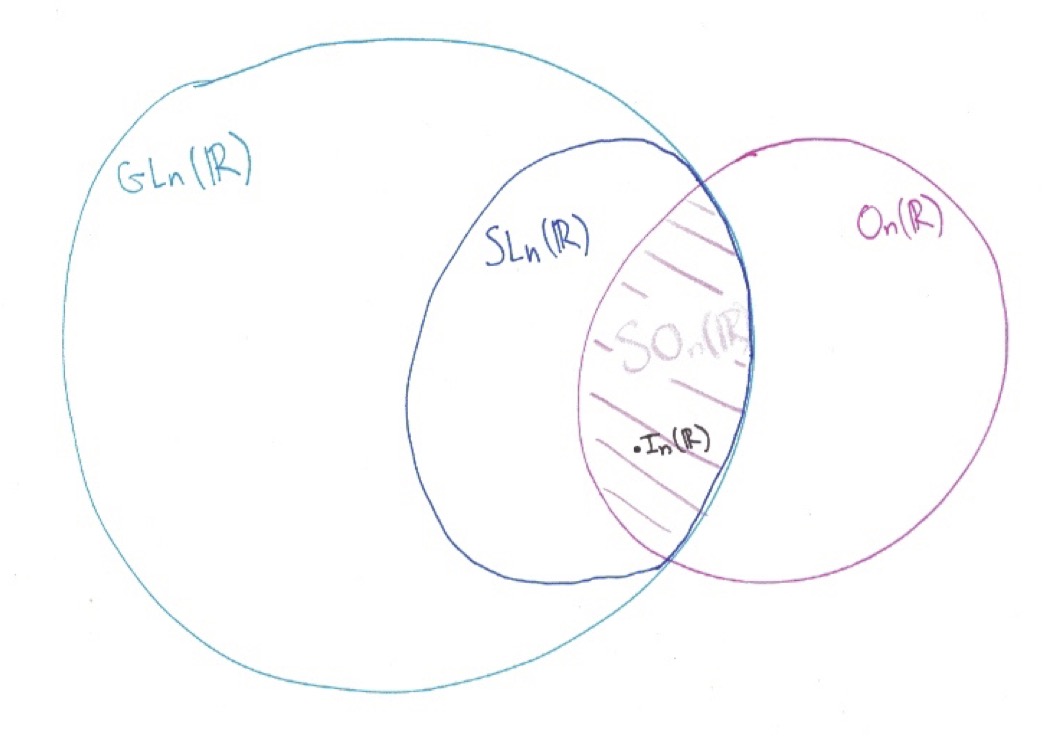 GLn(ℝ)
SLn(ℝ)
On(ℝ)
SOn(ℝ)
In(ℝ)